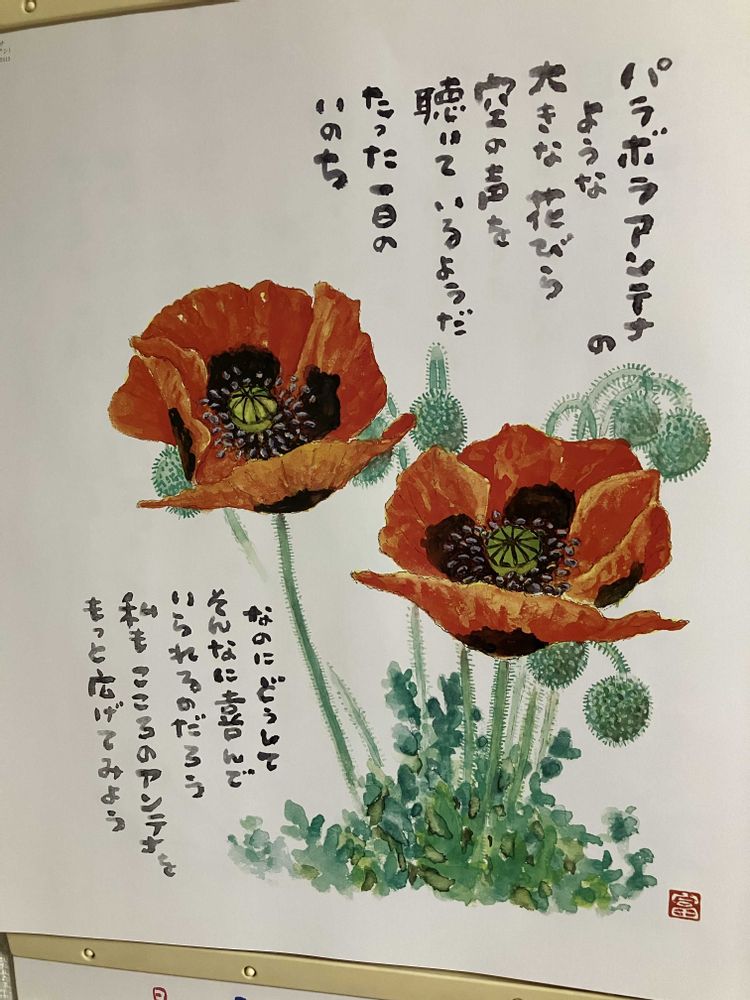 パラボラアンテナの
ような
大きな花びら
空の声を
聴いているようだ
たった一日の
いのち
なのにどうして
そんなに喜んで
いられるのだろう
私もこころのアンテナを
もっと広げてみよう
富